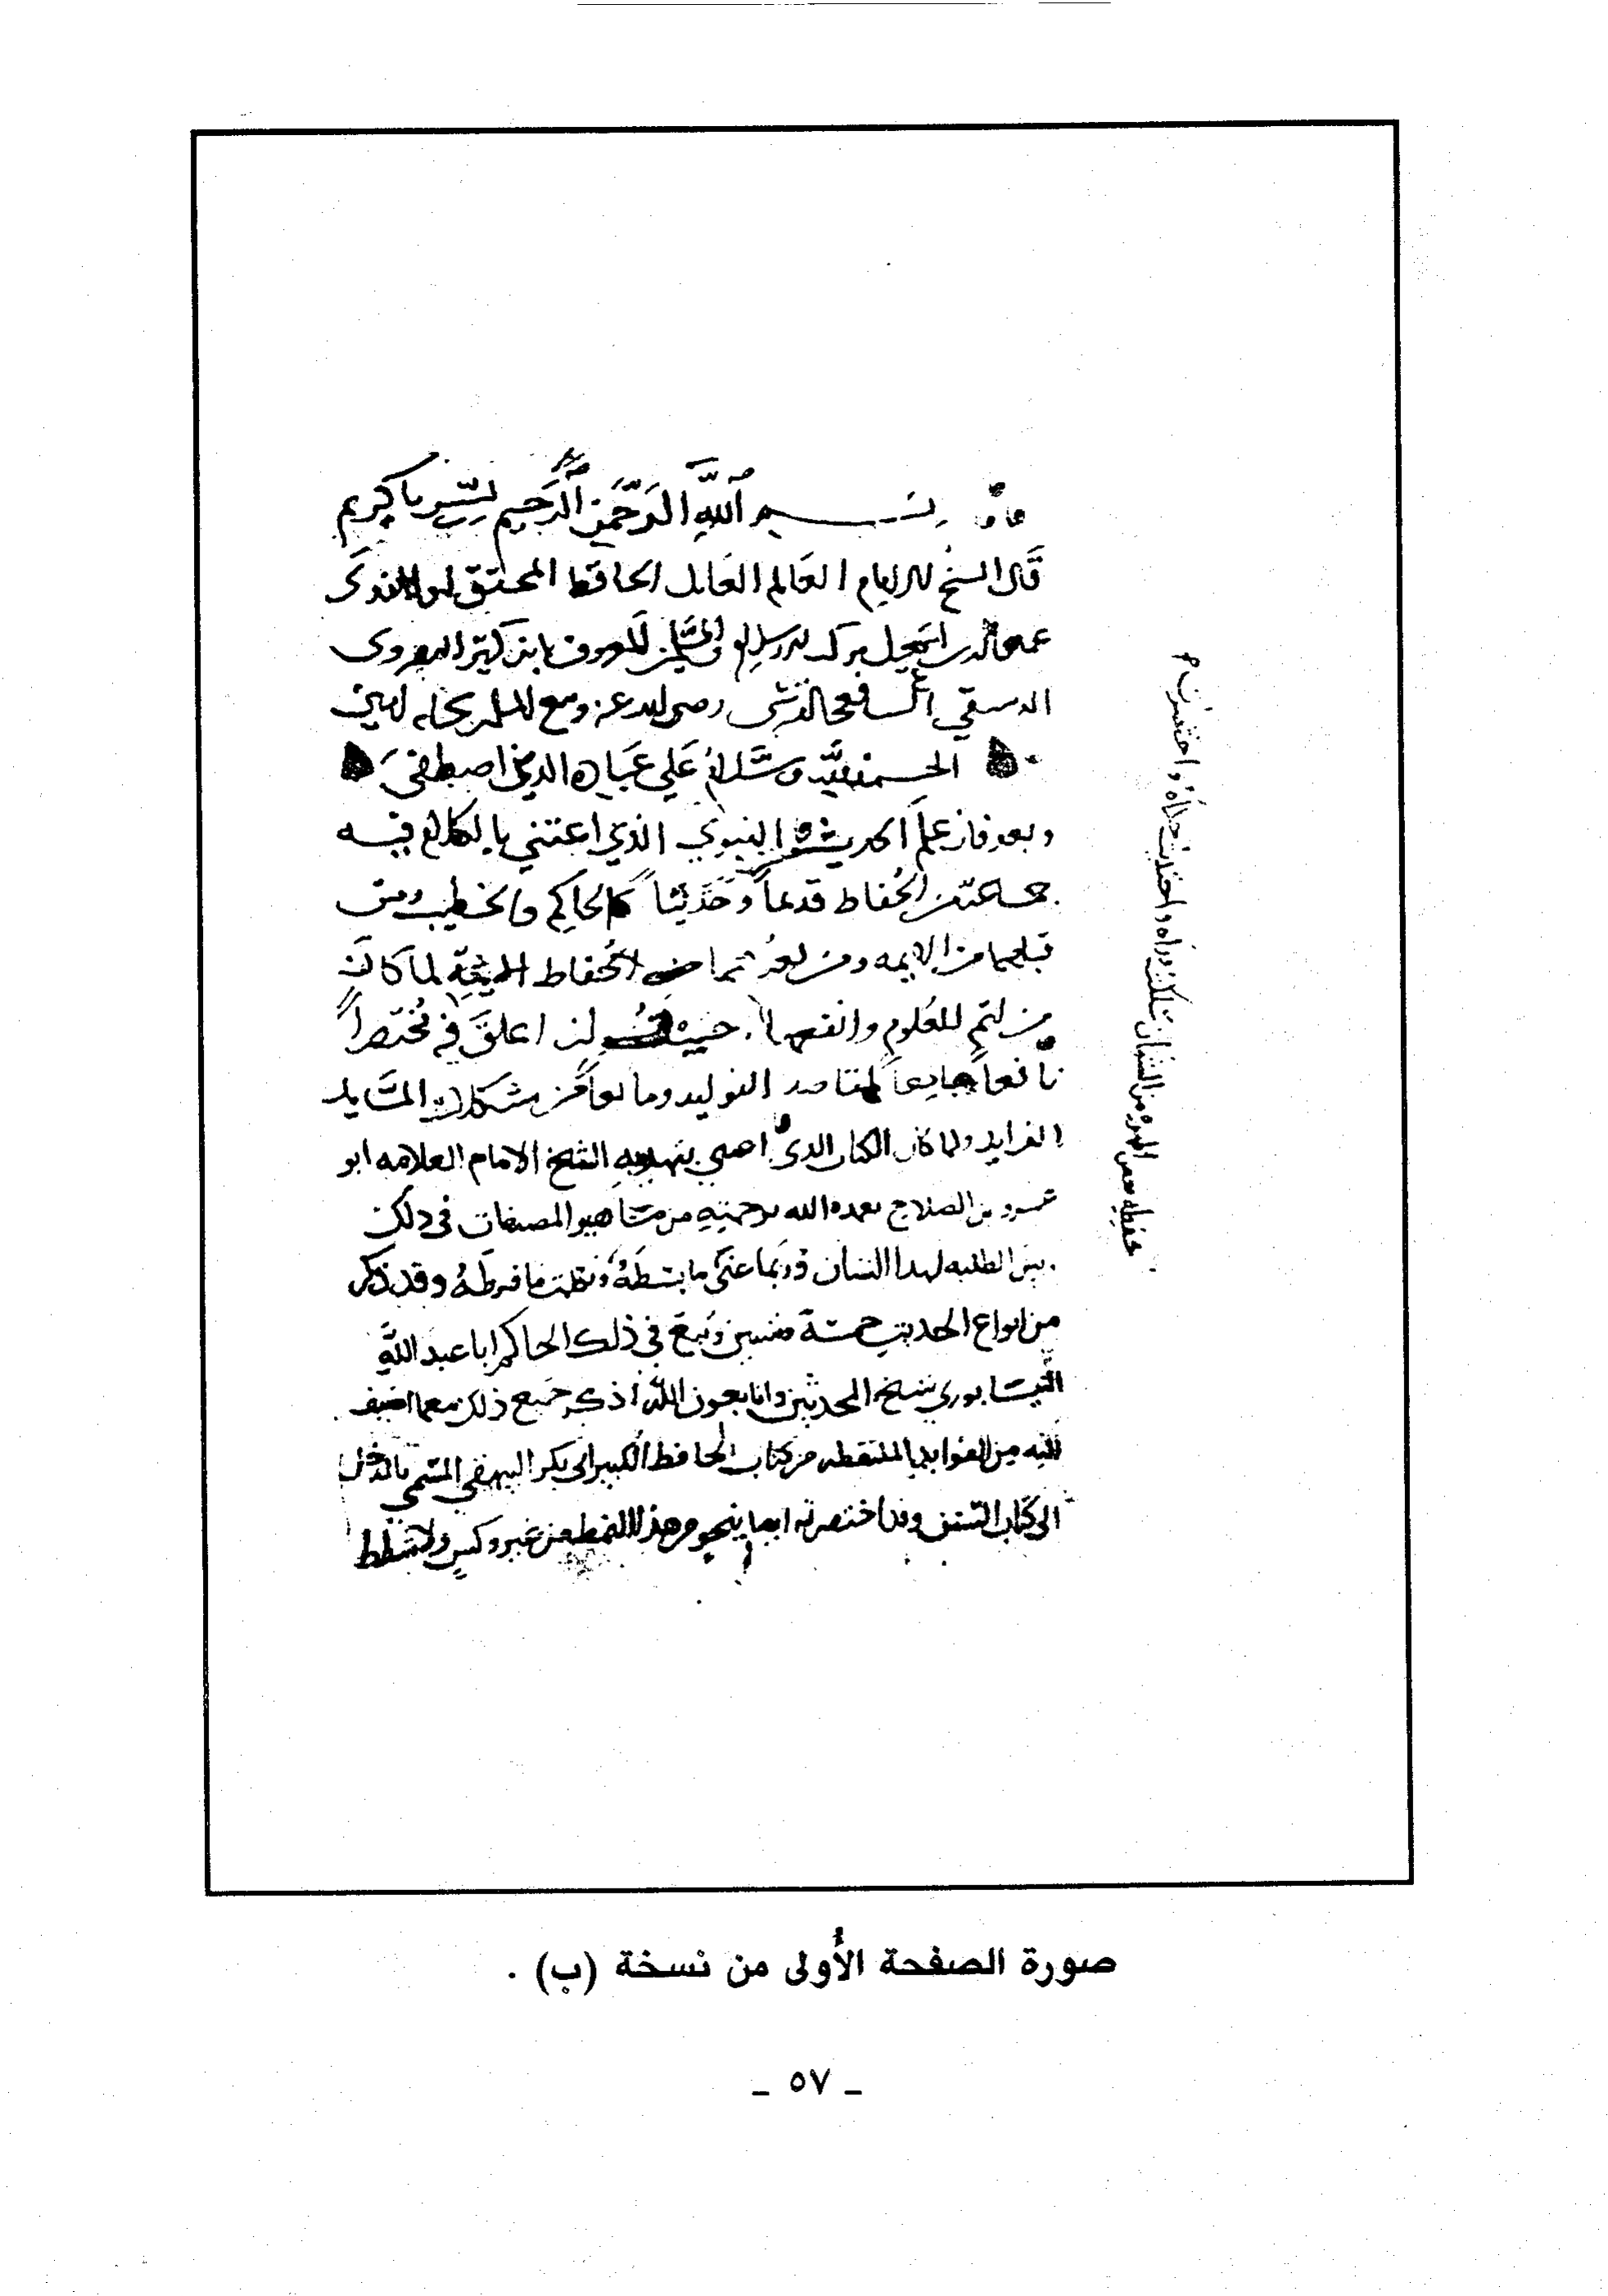 بسم اللهِ الرَّحمَنِ الرَّحِيم يسّر يا كريم
قَال الشيخ الامام العَالم العَامل الحافظ المحقق
عماد الدين اسمعيل بركه الاسلام والمسلمين المعروف بابن كثير
الدمسقي الشافعي رضي الله عنه ونفع المسلمين امين
الحمد لله وسَلامٌ عَلي عبَاده الذين اصطفىَ
وبعد فان علم الحديث النبوي الذي اعتنى بالكلام فيه
جماعة من الحُفاظ قديماً وحَديثاً كالحاكم والخطيب ومن
قبلهما من الايمه ومن بعدهما من الحُفاظ لما كان
من اهم العُلوم وانفعها احببت ان اعلق فيه مُختصراً
نافعاً جامعاً لمقاصد الفوايد ومانعاً من مشكلات المسَايل
الفرايد ولما كان الكتاب الذي اعتنى بتهذيبه الشيخ الامام العلامه ابو
عمرو بن الصلاح تغمده الله برحمته من مشاهير المصنفات في ذلك
بين الطلبه لهذا الشان وربما عني ما بسَطَهُ ونظمت ما فرطهُ وقد ذكر
من انواع الحديث خمسَة وستين وتبعَ في ذلك الحاكم ابا عبد اللهِ
النيسَابوري شيخ المحدثين وانا بعون الله اذكر جميع ذلك معما اضيف
اليه من الفوايد الملتقطه من كتاب الحافظ الكبير ابي بكر البيهقي المسَمى بالمدخل
الى كتاب السنن وقد اختصرته ايضا بنحو من هذا النمط من غير وكس ولا شطط
صورة الصفحة الأُولى من نسخة (ب) .
_ ٥٧ _